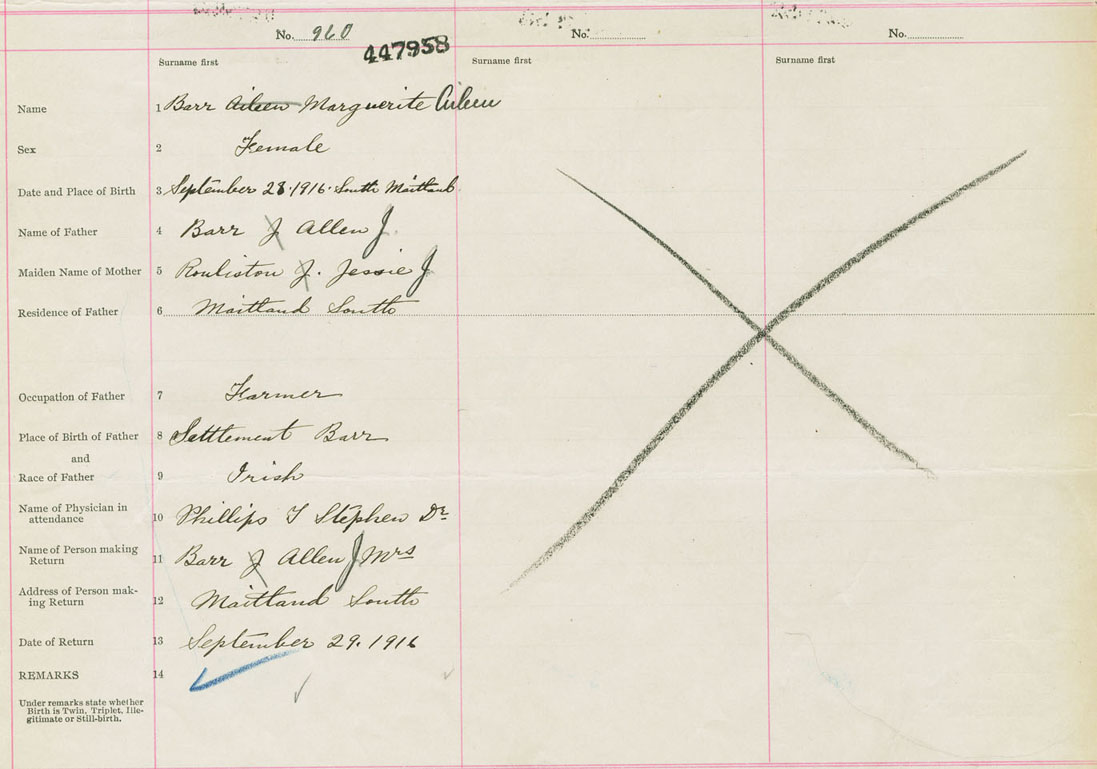 No. 960 No. No.
447958
Surname first Surname first Surname first
Name 1 Barr Aileen Marguerite Aileen
Sex 2 Female
Date and Place of Birth 3 September 28. 1916. South Maitland
Name of Father 4 Barr J Allen J.
Maiden Name of Mother 5 Rouliston J. Jessie J
Residence of Father 6 Maitland South
Occupation of Father 7 Farmer
Place of Birth of Father 8 Settlement Barr
and
Race of Father 9 Irish
Name of Physician in
attendance 10 Phillips T Stephen Dr
Name of Person making
Return 11 Barr J Allen J Mrs
Address of Person mak-
ing Return 12 Maitland South
Date of Return 13 September 29. 1916
REMARKS 14
Under remarks state whether
Birth is Twin, Triplet, Ille-
gitimate or Still-birth.